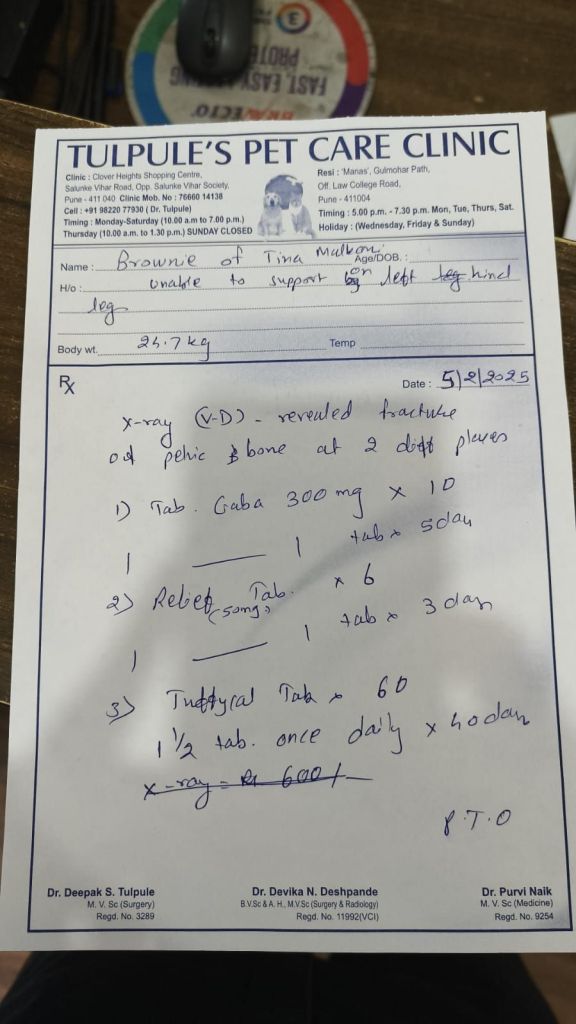 TULPULE'S PET CARE CLINIC
Clinic : Clover Heights Shopping Centre,
Salunke Vihar Road, Opp. Salunke Vihar Society,
Pune - 411 040 Clinic Mob. No : 76660 14138
Cell : +91 98220 77930 ( Dr. Tulpule)
Timing : Monday-Saturday (10.00 a.m to 7.00 p.m.)
Thursday (10.00 a.m. to 1.30 p.m.) SUNDAY CLOSED
Resi : 'Manas', Gulmohar Path,
Off. Law College Road,
Pune - 411004
Timing : 5.00 p.m. - 7.30 p.m. Mon, Tue, Thurs, Sat.
Holiday : (Wednesday, Friday & Sunday)
Name : Brownie of Tina Age/DOB. :
H/o : unable to support on left leg hind
leg
Body wt. 25.7 kg Temp
Rx Date : 5/2/2025
X-ray (V-D) - revealed fracture
of pelvic bone at 2 diff places
1) Tab. Gaba 300 mg x 10
1 —— 1 tab x 5 day
2) Relief Tab. x 6
(50mg)
1 —— 1 tab x 3 day
3) Tab x 60
1 1/2 tab. once daily x 40 day
x-ray = Rs 600/-
P.T.O
Dr. Deepak S. Tulpule
M. V. Sc (Surgery)
Regd. No. 3289
Dr. Devika N. Deshpande
B.V.Sc & A. H., M.V.Sc (Surgery & Radiology)
Regd. No. 11992(VCI)
Dr. Purvi Naik
M. V. Sc (Medicine)
Regd. No. 9254